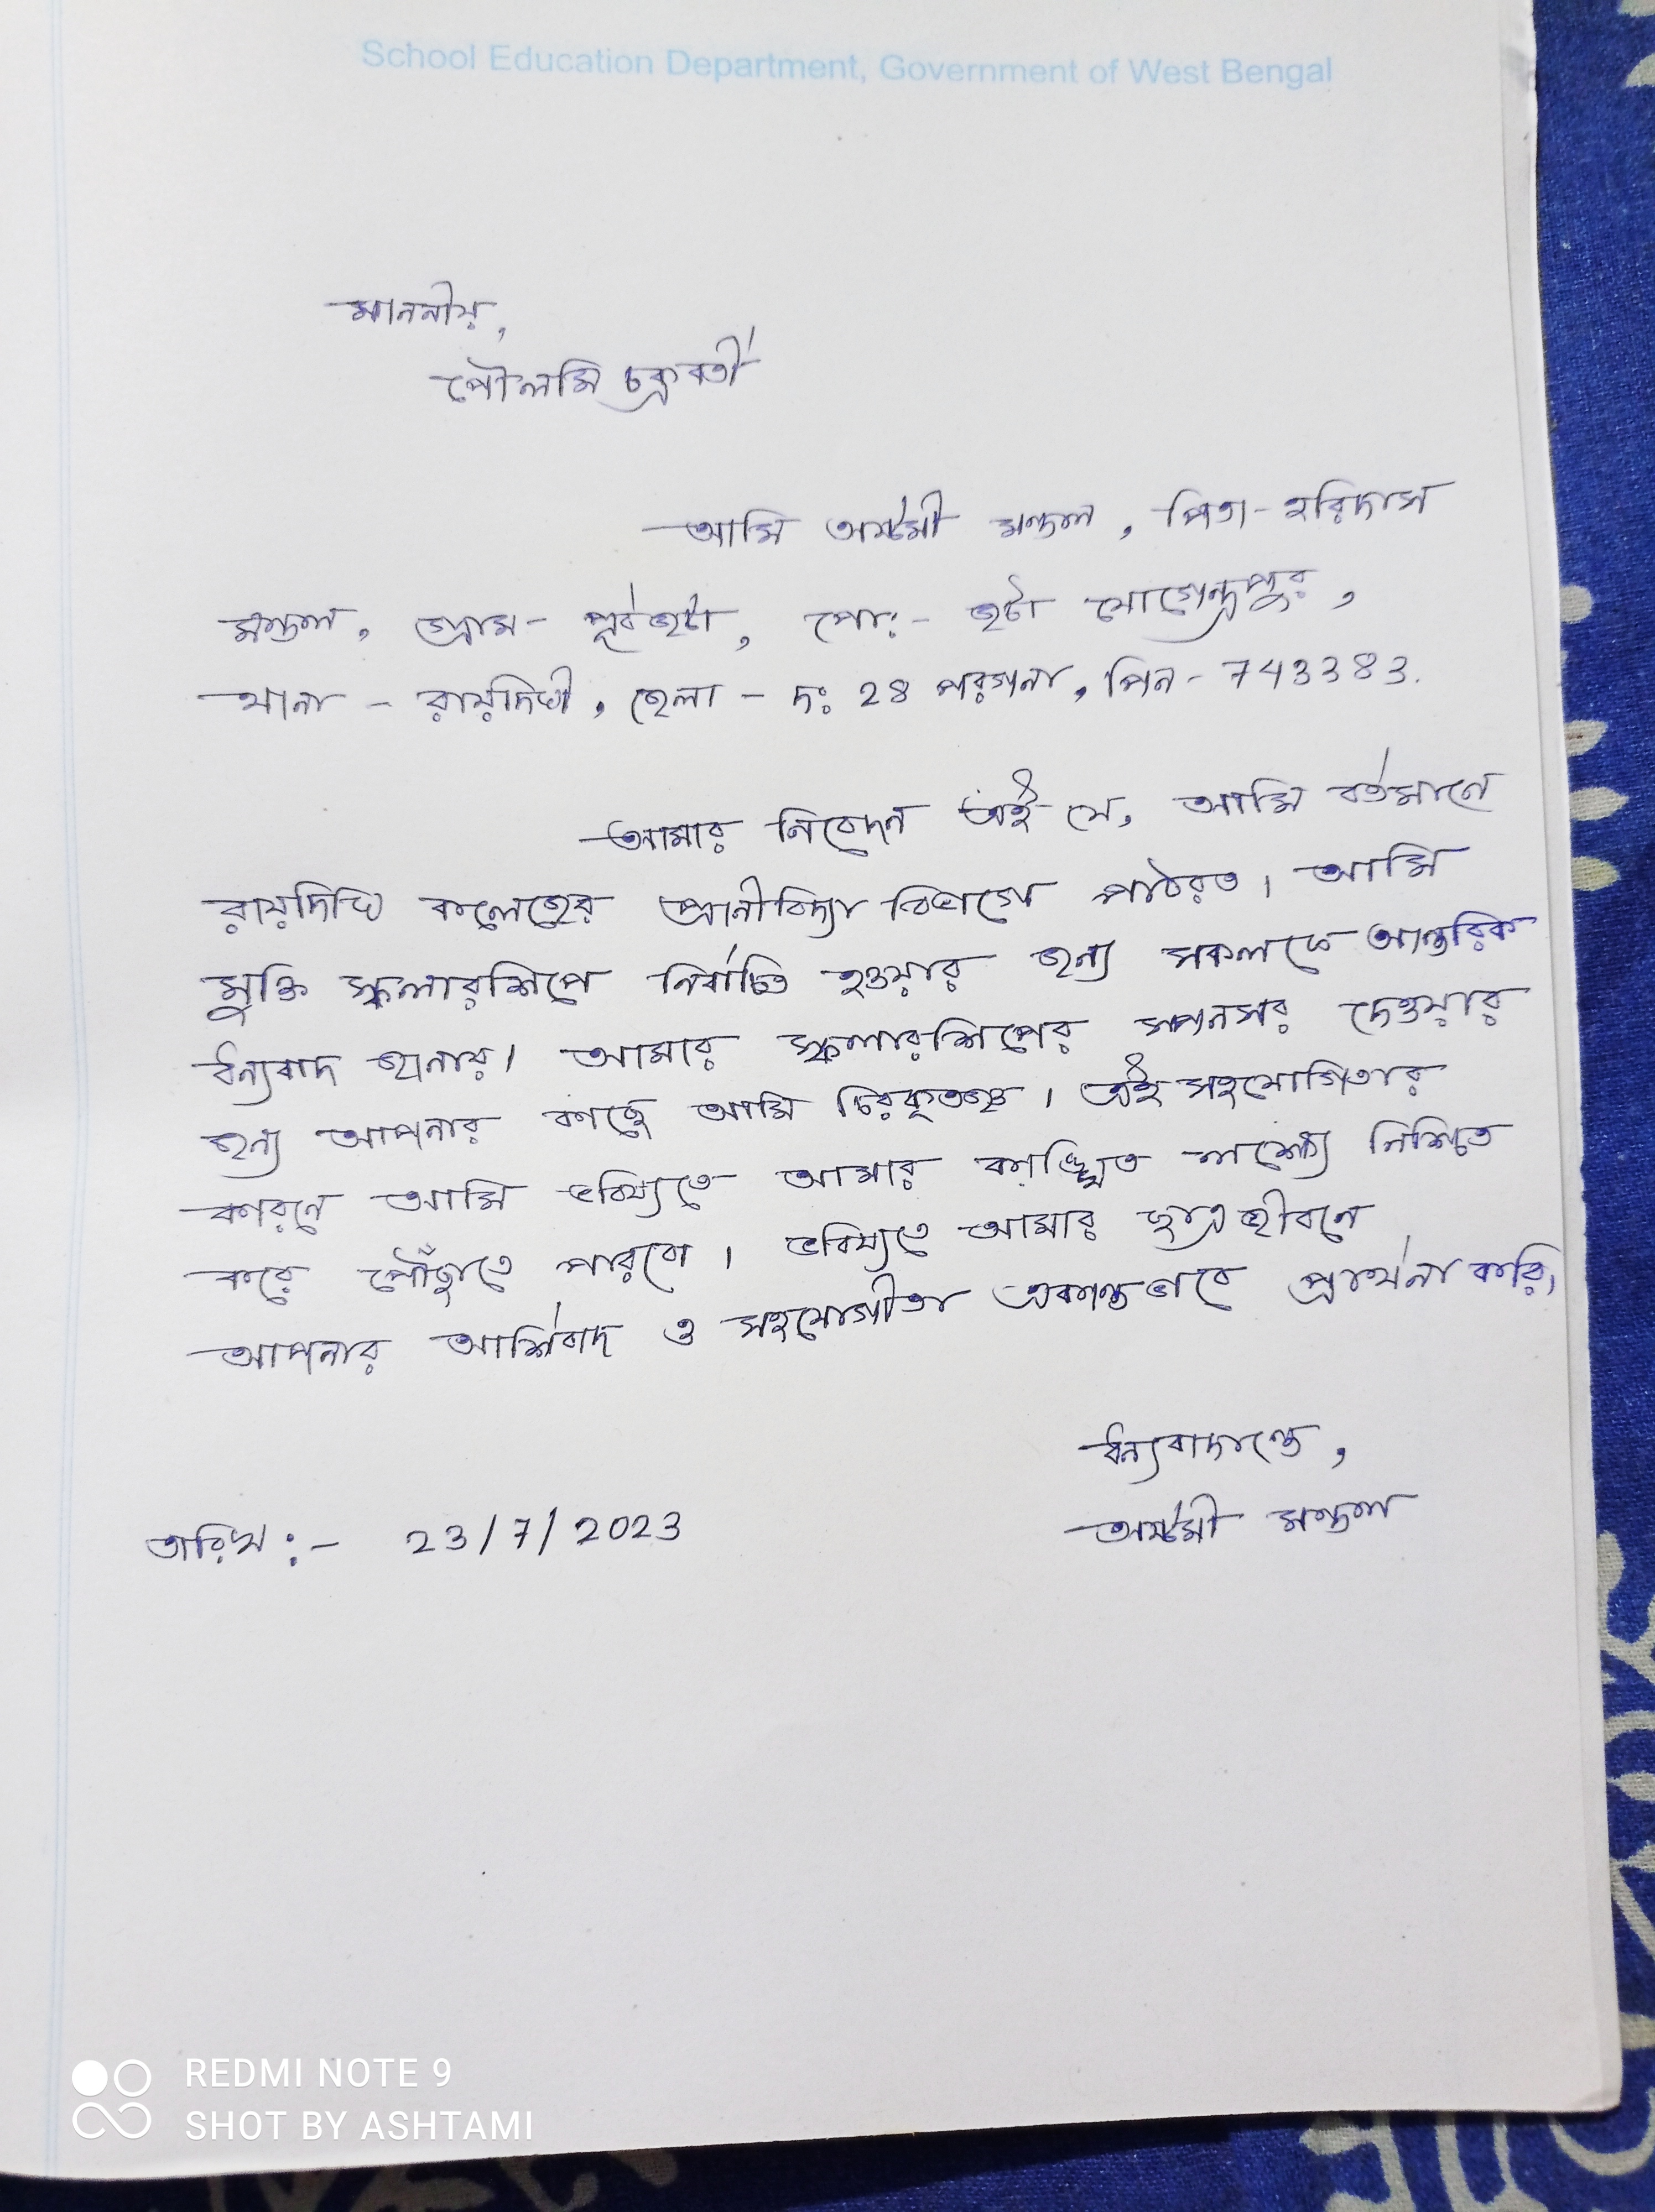 School Education Department, Government of West Bengal
মাননীয়,
পৌলমি চক্রবর্তী
আমি অষ্টমী মন্ডল, পিতা-হরিদাস
মন্ডল, গ্রাম- পূর্বজটা, পো:- জটা নগেন্দ্রপুর,
থানা - রায়দিঘী, জেলা - দঃ 24 পরগনা, পিন- 743383.
আমার নিবেদন এই যে, আমি বর্তমানে
রায়দিঘি কলেজের প্রানীবিদ্যা বিভাগে পাঠরত। আমি
মুক্তি স্কলারশিপে নির্বাচিত হওয়ার জন্য সকলকে আন্তরিক
ধন্যবাদ জানায়। আমার স্কলারশিপের স্পনসর দেওয়ার
জন্য আপনার কাছে আমি চিরকৃতজ্ঞ। এই সহযোগিতার
কারনে আমি ভবিষ্যতে আমার কাঙ্খিত লক্ষ্যে নিশ্চিত
করে পৌঁছাতে পারবো। ভবিষ্যতে আমার ছাত্রজীবনে
আপনার আর্শিবাদ ও সহযোগীতা একান্তভাবে প্রার্থনা করি।
ধন্যবাদান্তে,
তারিখ:- 23/7/2023
অষ্টমী মন্ডল
REDMI NOTE 9
SHOT BY ASHTAMI